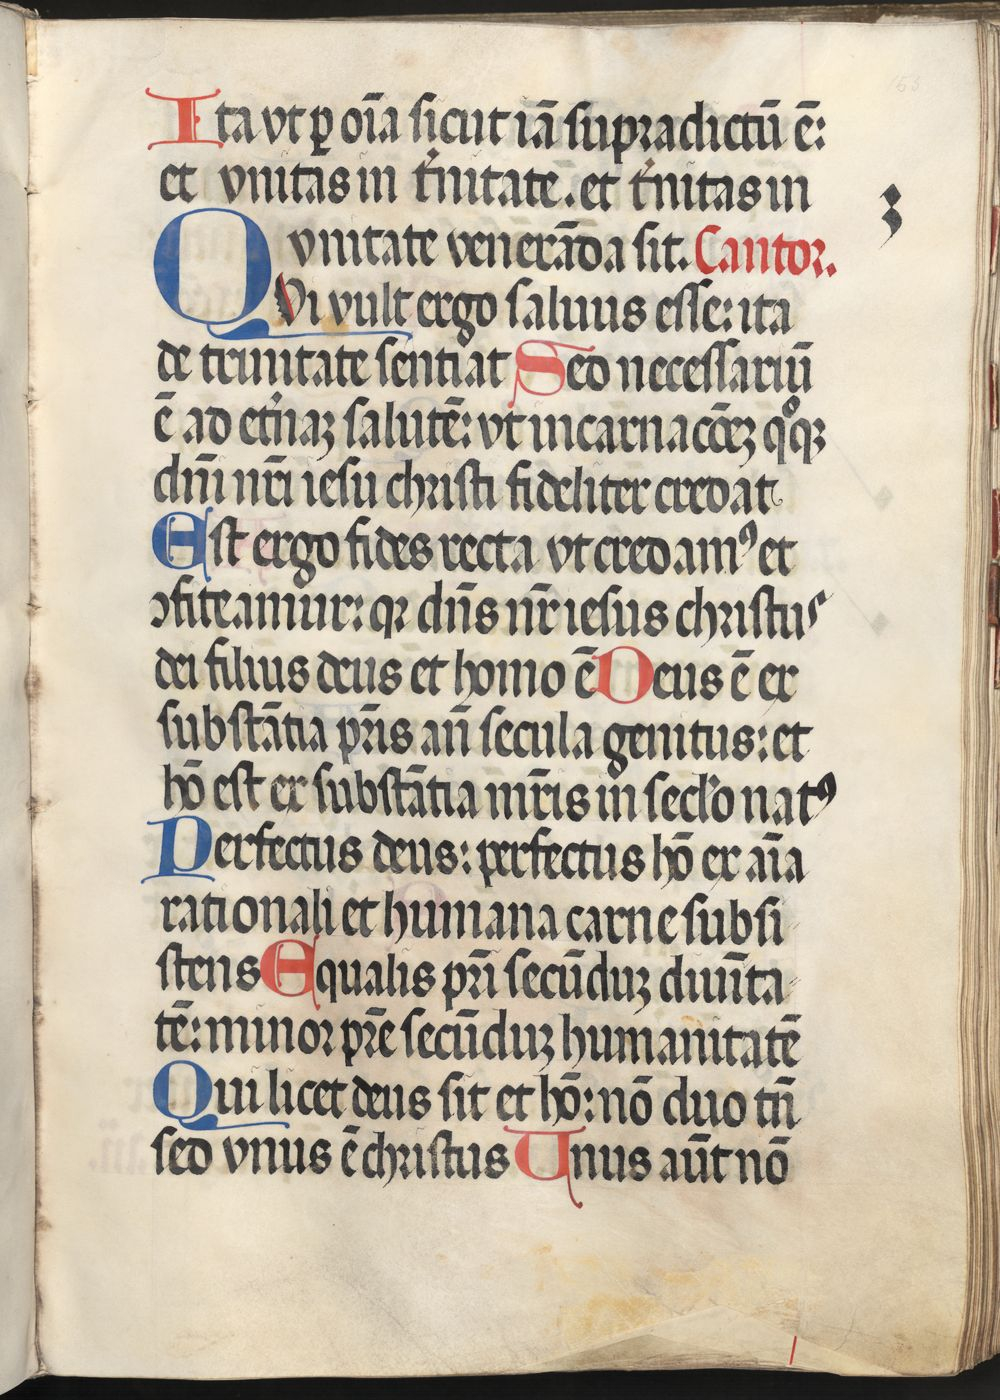 153
Ita vt ꝑ oīa sicut iā supradictū ē:
et vnitas in tⁱnitate. et tⁱnitas in
vnitate venerāda sit. Cantor.
QVi vult ergo saluus esse: ita
de trinitate sentiat Sed necessariū
ē ad et̄naꝫ salutē: vt incarnacōeꝫ qͦqꝫ
dn̄i nr̄i iesu christi fideliter credat
Est ergo fides recta vt credamꝰ et
ↄfiteamur: qꝛ dn̄s nr̄ iesus christus
dei filius deus et homo ē Deus ē ex
substātia pr̄is an̄ secula genitus: et
hō est ex substātia mr̄is in secl̄o natꝰ
Perfectus deus: perfectus hō ex aīa
rationali et humana carne subsi
stens Equalis pr̄i secūduꝫ diuīta
tē: minor pr̄e secūduꝫ humanitatē
Qui licet deus sit et hō: nō duo tn̄
sed vnus ē christus Unus aūt nō